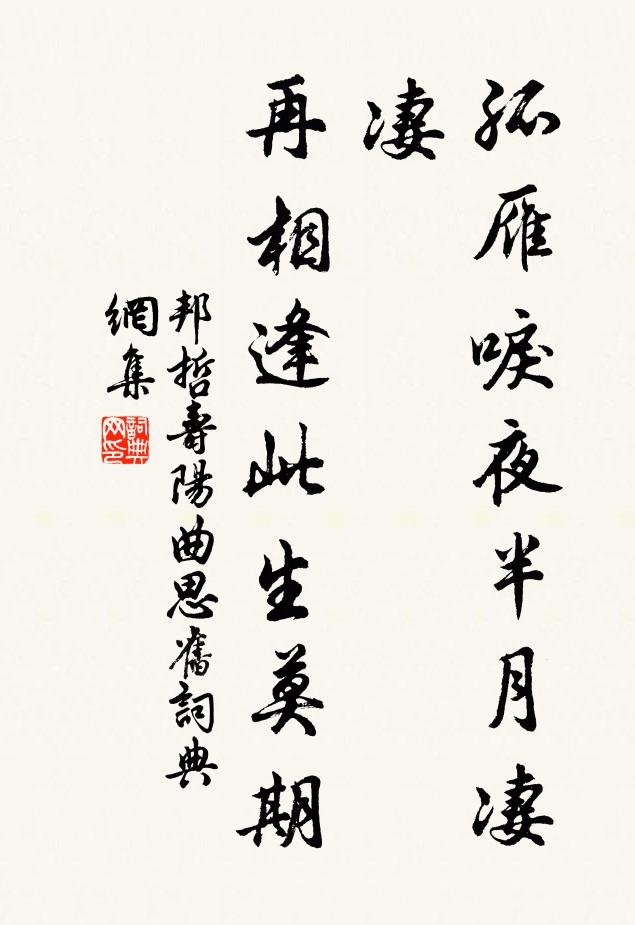 孤雁唳夜半月凄
凄
再相逢此生莫期
邦哲壽陽曲思舊詞典
網集
詞典網印